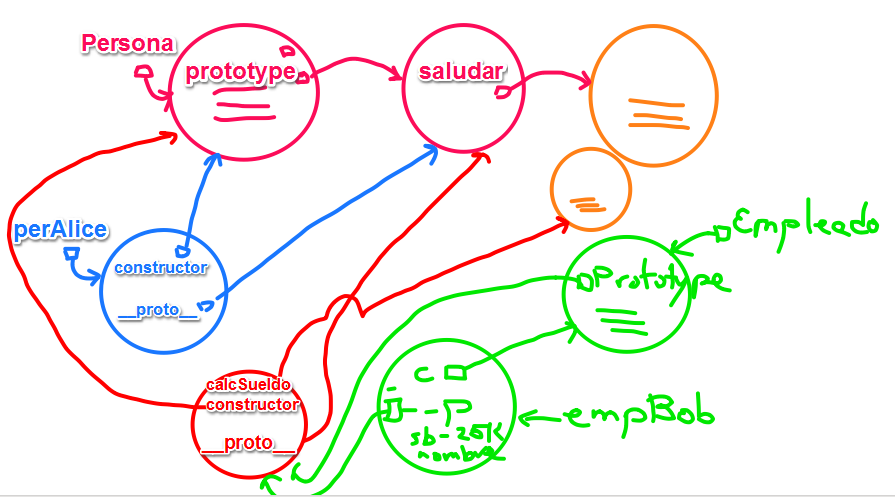 Persona
prototype
saludar
perAlice
constructor
__proto__
Empleado
Prototype
calcSueldo
constructor
__proto__
c
empBob
sb-25K
nombre